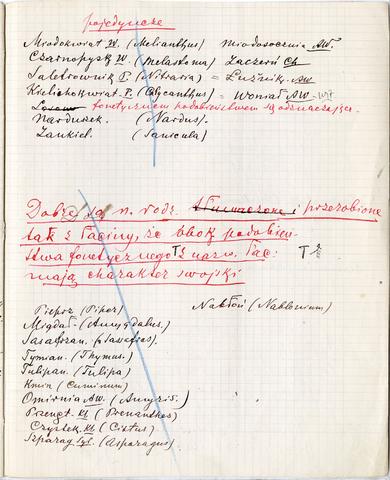 pojedyncze
Miodokwiat W. (Melianthus) Miodosocznia AW.
Czarnopysk W. (Melastoma) Zaczerń Ch
Saletrownik P. (Nitraria) = Łużnik. AW
Kielichokwiat. P. (Calycanthus) = Woniał AW
fonetycznem podobieństwem są odznaczające.
Nardusek. (Nardus.)
Żankiel. (Sanicula)
Dobre są n. rodz. tłumaczone i przerobione
tak z łaciny, że obok podobień-
stwa fonetycznego T z nazw. łac.
mają charakter swojski
T
Pieprz (Piper) Nakłoń (Nablonium)
Migdał. (Amygdalus.)
Sasafrzan. (Sassafras.)
Tymian. (Thymus.)
Tulipan. (Tulipa)
Kmin (Cuminum)
Omirnia AW. (Amyris.)
Przenęt. Kl. (Prenanthes)
Czystek. Kl. (Cistus)
Szparag (Asparagus)